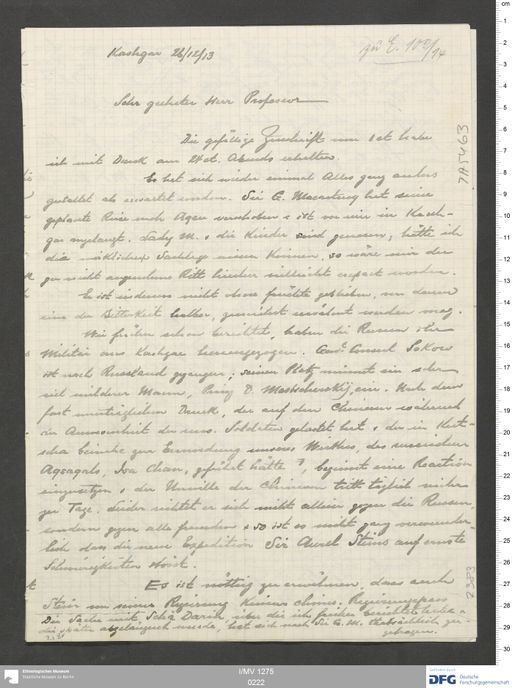 Kashgar 26/12/13
zu E. 100/14
Sehr geehrter Herr Professor
Die gefällige Zuschrift vom 1 ct. habe
ich mit Dank am 24 ct. Abends erhalten.
Es hat sich wieder einmal Alles ganz anders
gestaltet als erwartet worden. Sir G. Macartney hat seine
geplante Reise nach Aqsu verschoben & ist vor mir in Kash-
gar angelangt. Lady M. & die Kinder sind genesen; hätte ich
die wirkliche Sachlage wissen können, so wäre mir der
gar nicht angenehme Ritt hierher vielleicht erspart worden.
Es ist indessen nicht ohne Früchte geblieben, von denen
eine der Seltenheit halber, zunächst erwähnt werden mag.
Wie früher schon berichtet, haben die Russen ihr
Militär aus Kashgar herausgezogen. Gen. Consul Sokow
ist nach Russland gegangen; seinen Platz nimmt ein sehr
viel milderer Mann, Prinz D. Mestscherskij, ein. Nach dem
fast unerträglichen Druck, der auf den Chinesen während
der Anwesenheit der russ. Soldaten gelastet hat & der in Kut-
scha beinahe zur Ermordung unseres Wirthes, des russischen
Aqsaqals, Isa Chan, geführt hätte, beginnt eine Reaction
einzusetzen & der Unwille der Chinesen tritt täglich mehr
zu Tage. Leider richtet er sich nicht allein gegen die Russen,
sondern gegen alle Fremden & so ist es nicht ganz verwunder-
lich dass die neue Expedition Sir Aurel Steins auf ernste
Schwierigkeiten stösst.
Es ist nöthig zu erwähnen, dass auch
Stein von seiner Regierung keinen chines. Regierungspass
Die Sache mit Isa über die ich früher berichtete habe &
die später abgeleugnet wurde, hat sich nach Sir G. M. thatsächlich zu-
getragen.
7A5463
2383
Ethnologisches Museum
Staatliche Museen zu Berlin
I/MV 1275
0222
gefördert durch
DFG Deutsche
Forschungsgemeinschaft
cm
1
2
3
4
5
6
7
8
9
10
11
12
13
14
15
16
17
18
19
20
21
22
23
24
25
26
27
28
29
30